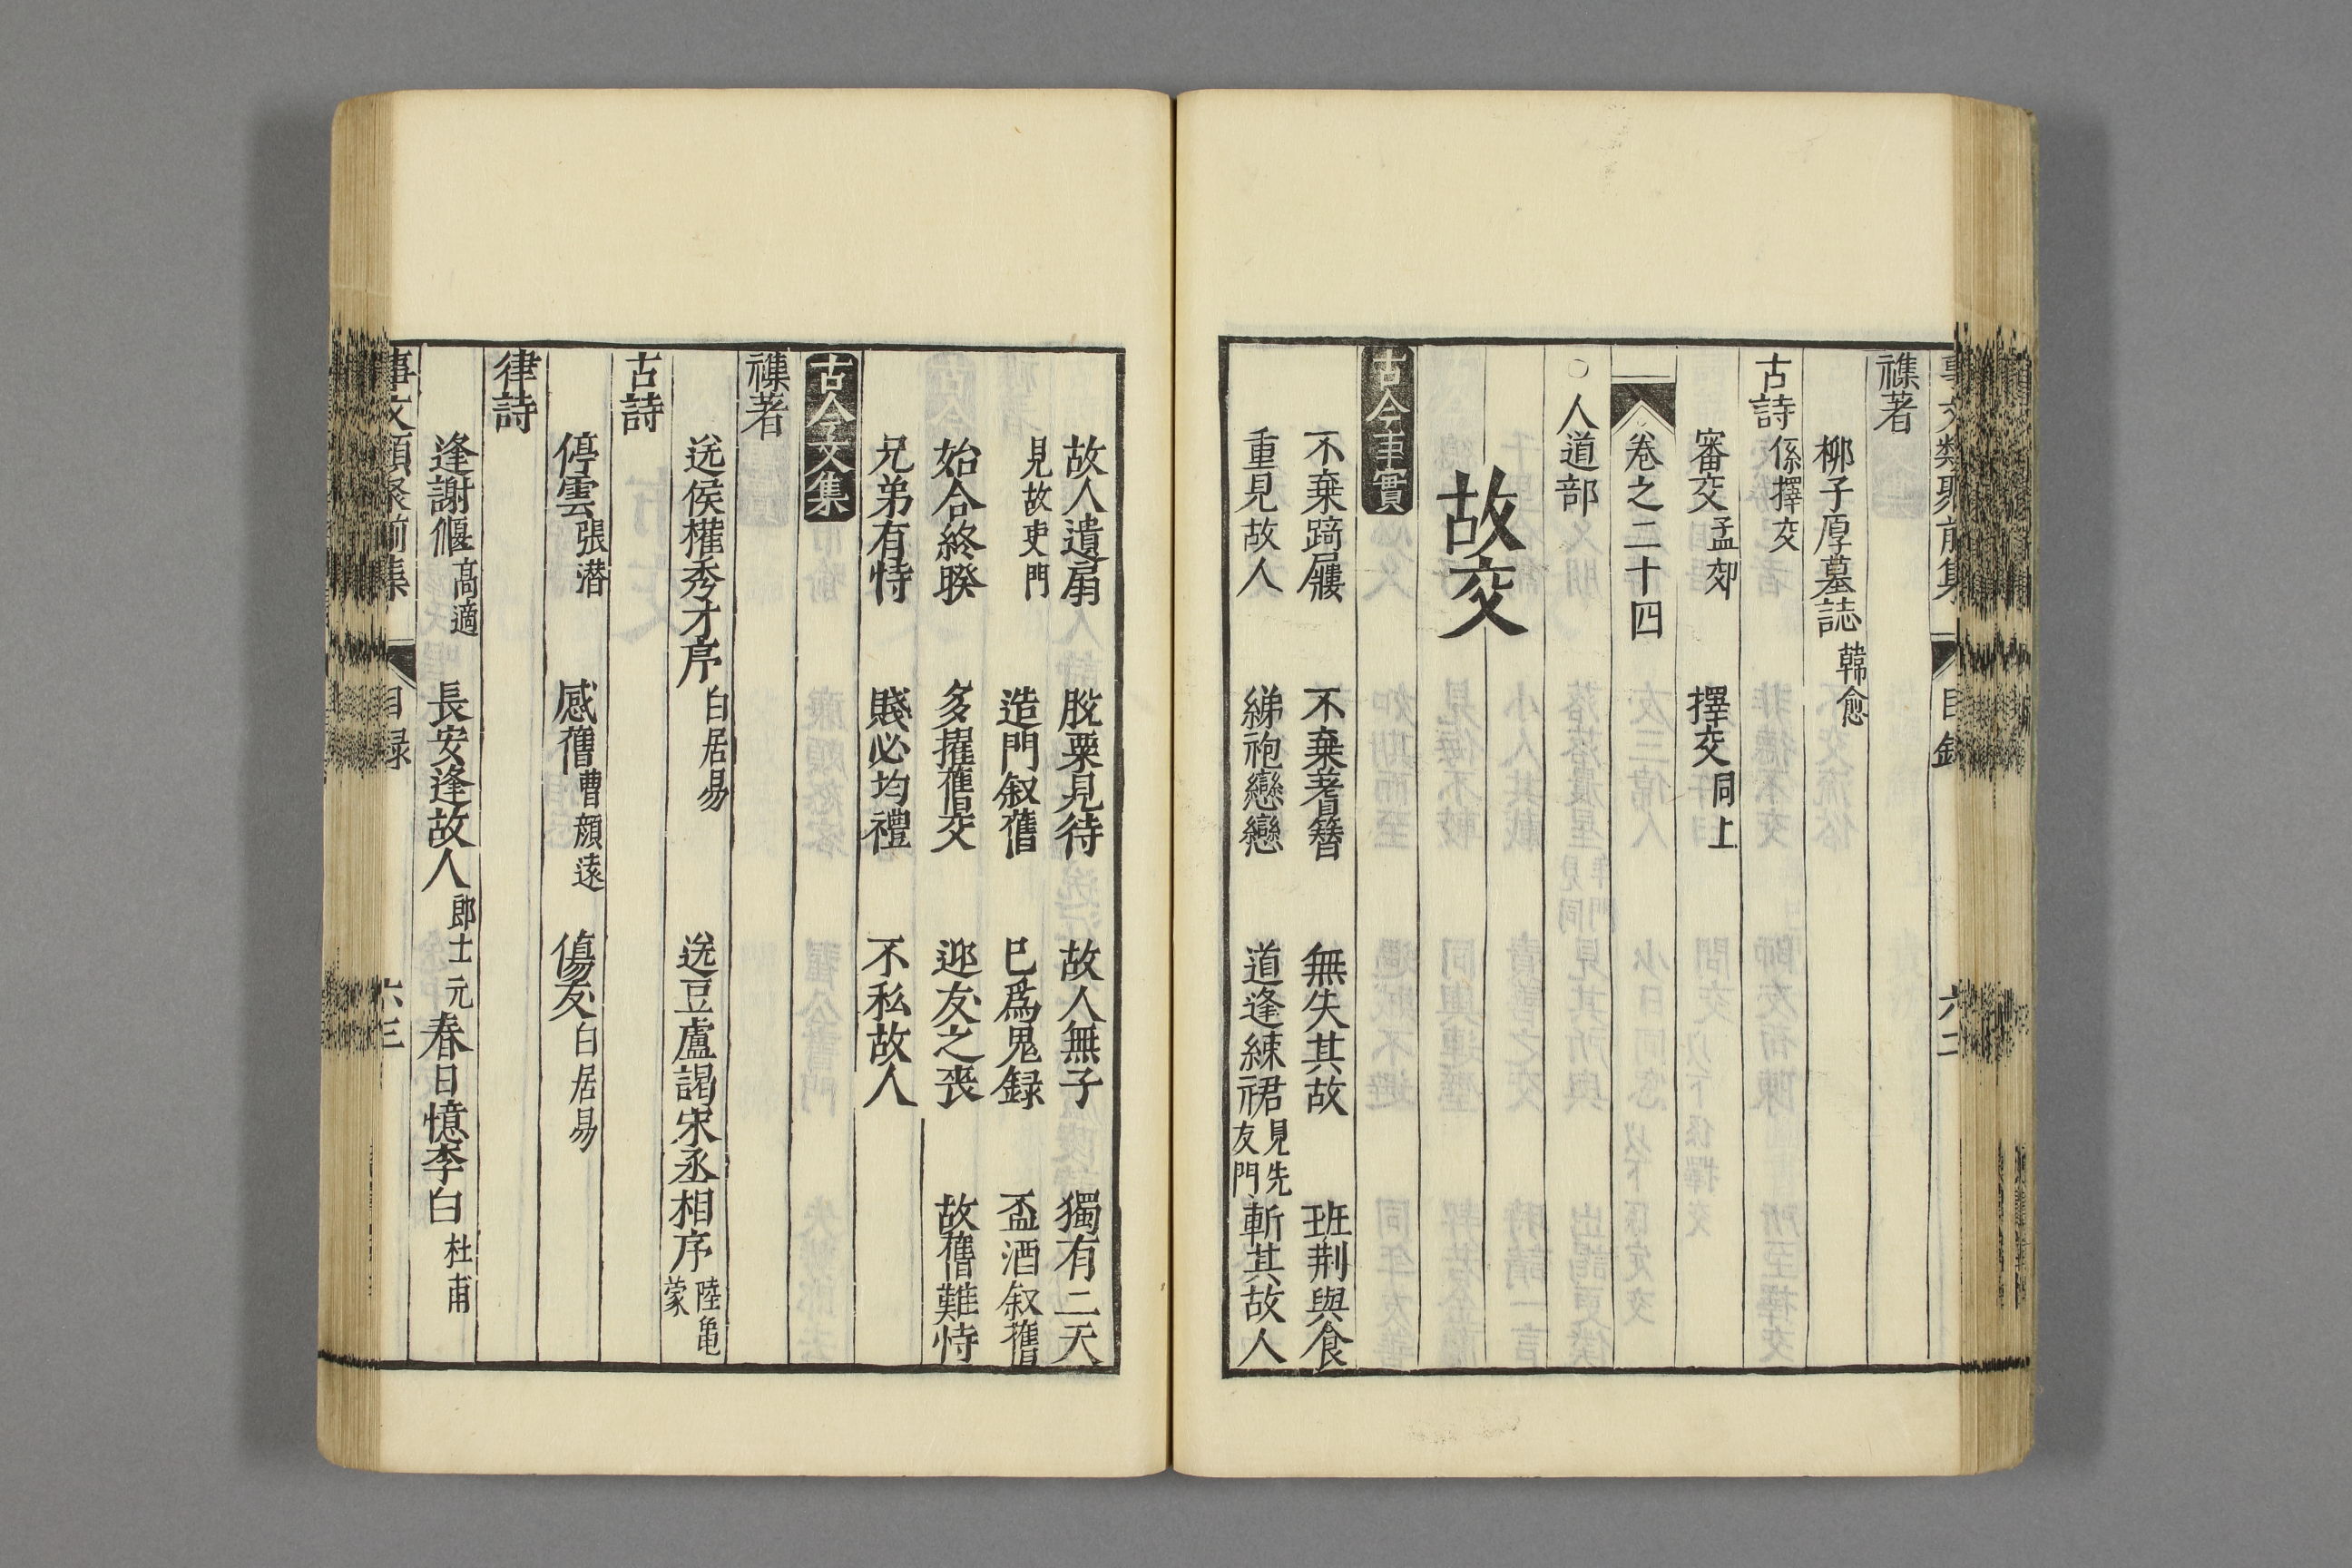 事文類聚前集 目録 六二
襍著
柳子厚墓誌 韓愈
古詩 係擇交
審交 孟郊 擇交 同上
卷之二十四
○人道部
故交
古今事實
不棄踦屨 不棄蓍簪 無失其故 班荆與食
重見故人 綈袍戀戀 道逢練裙 見先友門 斬其故人
故人遺扇 脫粟見待 故人無子 獨有二天
見故吏門 造門叙舊 已爲鬼録 盃酒叙舊
始合終睽 多擢舊交 迎友之喪 故舊難恃
兄弟有恃 賤必均禮 不私故人
古今文集
襍著
送侯權秀才序 白居易 送豆盧謁宋丞相序 陸龜蒙
古詩
停雲 張潜 感舊 曹顔遠 傷友 白居易
律詩
逢謝偃 高適 長安逢故人 郎士元 春日憶李白 杜甫
事文類聚前集 目録 六三